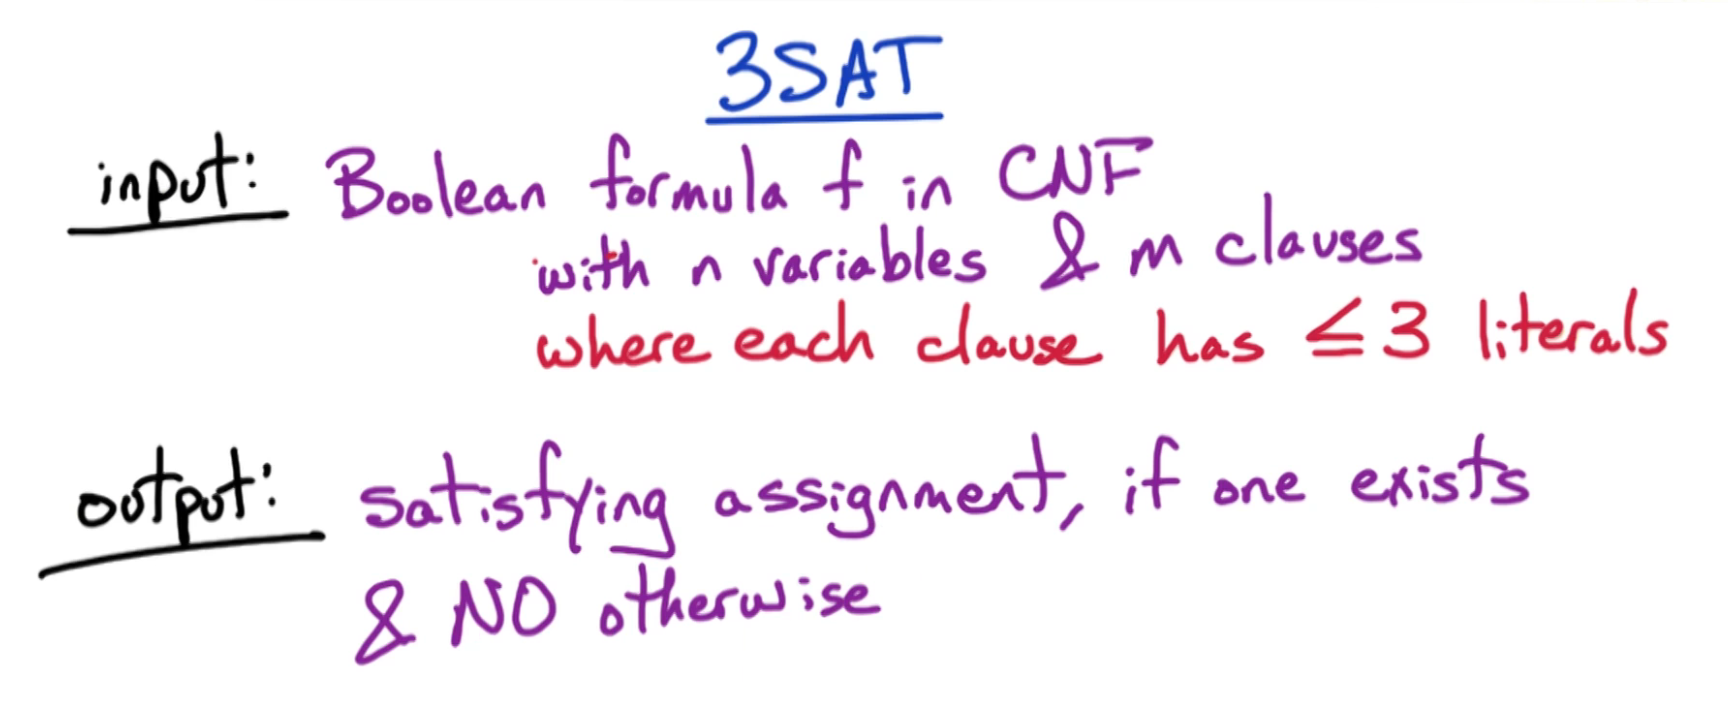 3SAT
input: Boolean formula f in CNF
with n variables & m clauses
where each clause has ≤3 literals
output: satisfying assignment, if one exists
& NO otherwise